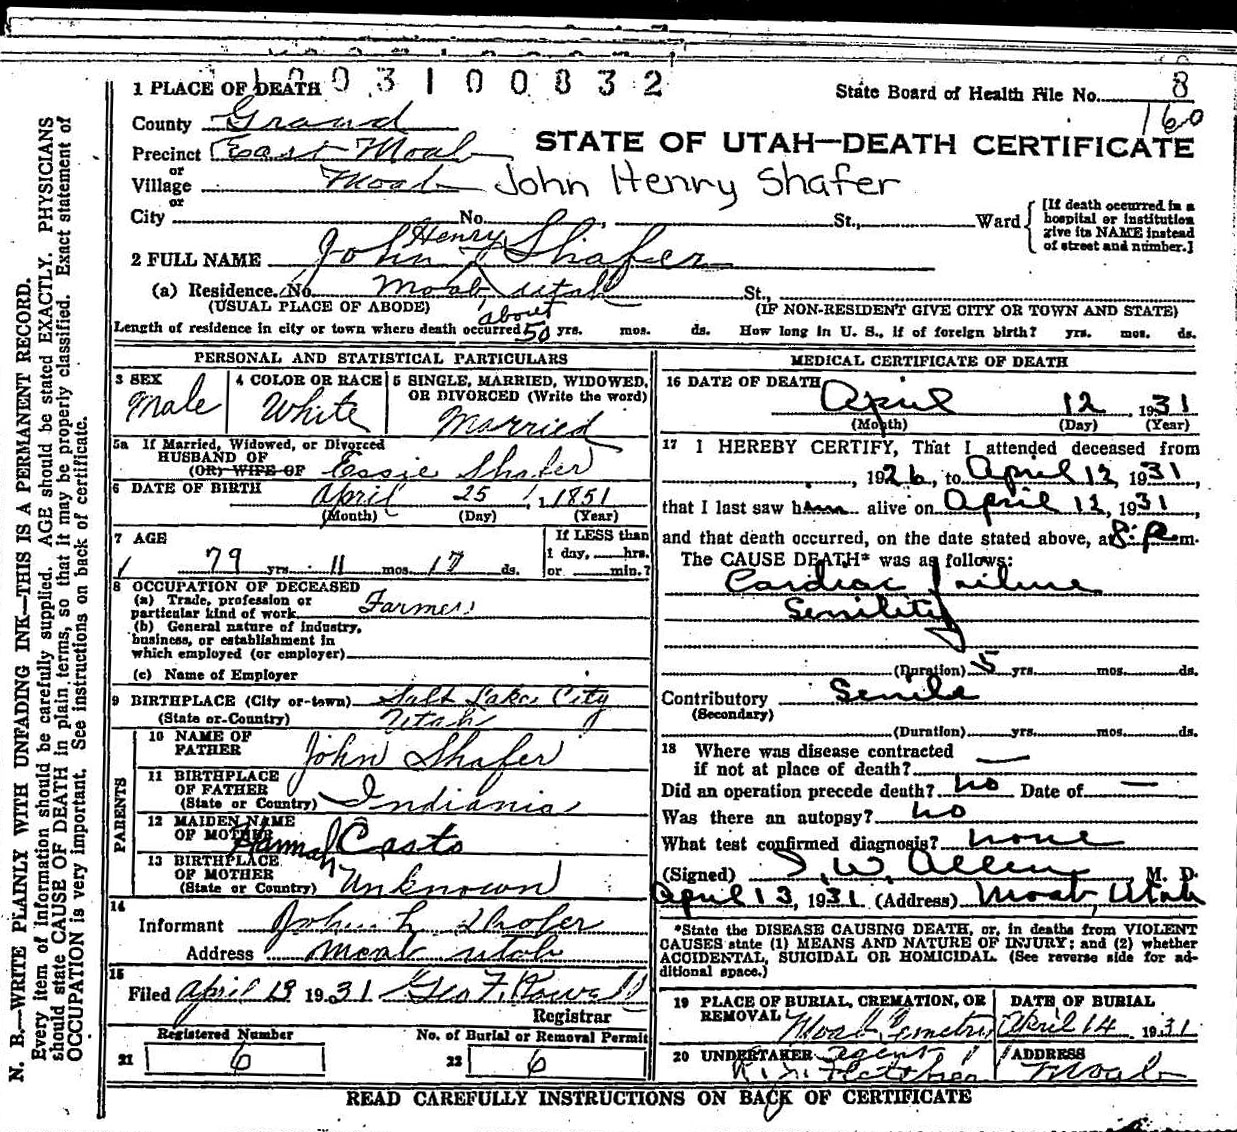 1003100832
1 PLACE OF DEATH
State Board of Health File No. 8
160
County Grand
STATE OF UTAH—DEATH CERTIFICATE
Precinct East Moab
or
Village Moab John Henry Shafer
or
City No. , St., Ward
[If death occurred in a hospital or institution give its NAME instead of street and number.]
Henry
2 FULL NAME John Shafer
(a) Residence. No. Moab, Utah St.,
(USUAL PLACE OF ABODE) (IF NON-RESIDENT GIVE CITY OR TOWN AND STATE)
about
Length of residence in city or town where death occurred 50 yrs. mos. ds. How long in U. S., if of foreign birth? yrs. mos. ds.
PERSONAL AND STATISTICAL PARTICULARS
3 SEX
Male
4 COLOR OR RACE
White
5 SINGLE, MARRIED, WIDOWED,
OR DIVORCED (Write the word)
Married
5a If Married, Widowed, or Divorced
HUSBAND OF
(OR) WIFE OF Essie Shafer
6 DATE OF BIRTH April 25, 1851
(Month) (Day) (Year)
7 AGE
79 yrs. 11 mos. 17 ds.
If LESS than
1 day, hrs.
or min.?
8 OCCUPATION OF DECEASED
(a) Trade, profession or
particular kind of work Farmer
(b) General nature of industry,
business, or establishment in
which employed (or employer)
(c) Name of Employer
9 BIRTHPLACE (City or town) Salt Lake City
(State or Country) Utah
PARENTS
10 NAME OF
FATHER John Shafer
11 BIRTHPLACE
OF FATHER
(State or Country) Indiania
12 MAIDEN NAME
OF MOTHER Hannah Casto
13 BIRTHPLACE
OF MOTHER
(State or Country) Unknown
14
Informant John L. Shafer
Address Moab Utah
15
Filed April 13 1931 Geo F. Powell
Registrar
Registered Number
21 6
No. of Burial or Removal Permit
22 6
MEDICAL CERTIFICATE OF DEATH
16 DATE OF DEATH April 12, 1931
(Month) (Day) (Year)
17 I HEREBY CERTIFY, That I attended deceased from
, 1926, to April 12, 1931,
that I last saw him alive on April 12, 1931,
and that death occurred, on the date stated above, at 8: P. m.
The CAUSE DEATH* was as follows:
Cardiac failure
Senility
(Duration) 5 yrs. mos. ds.
Contributory Senile
(Secondary)
(Duration) yrs. mos. ds.
18 Where was disease contracted
if not at place of death? —
Did an operation precede death? no Date of —
Was there an autopsy? no
What test confirmed diagnosis? none
(Signed) I. W. Allen, M. D.
April 13, 1931 (Address) Moab, Utah
*State the DISEASE CAUSING DEATH, or, in deaths from VIOLENT
CAUSES state (1) MEANS AND NATURE OF INJURY; and (2) whether
ACCIDENTAL, SUICIDAL OR HOMICIDAL. (See reverse side for ad-
ditional space.)
19 PLACE OF BURIAL, CREMATION, OR
REMOVAL Moab Cemetery
DATE OF BURIAL
April 14 1931
20 UNDERTAKER agent
Fletcher
ADDRESS
Moab
READ CAREFULLY INSTRUCTIONS ON BACK OF CERTIFICATE
N. B.—WRITE PLAINLY WITH UNFADING INK—THIS IS A PERMANENT RECORD.
Every item of information should be carefully supplied. AGE should be stated EXACTLY. PHYSICIANS
should state CAUSE OF DEATH in plain terms, so that it may be properly classified. Exact statement of
OCCUPATION is very important. See instructions on back of certificate.